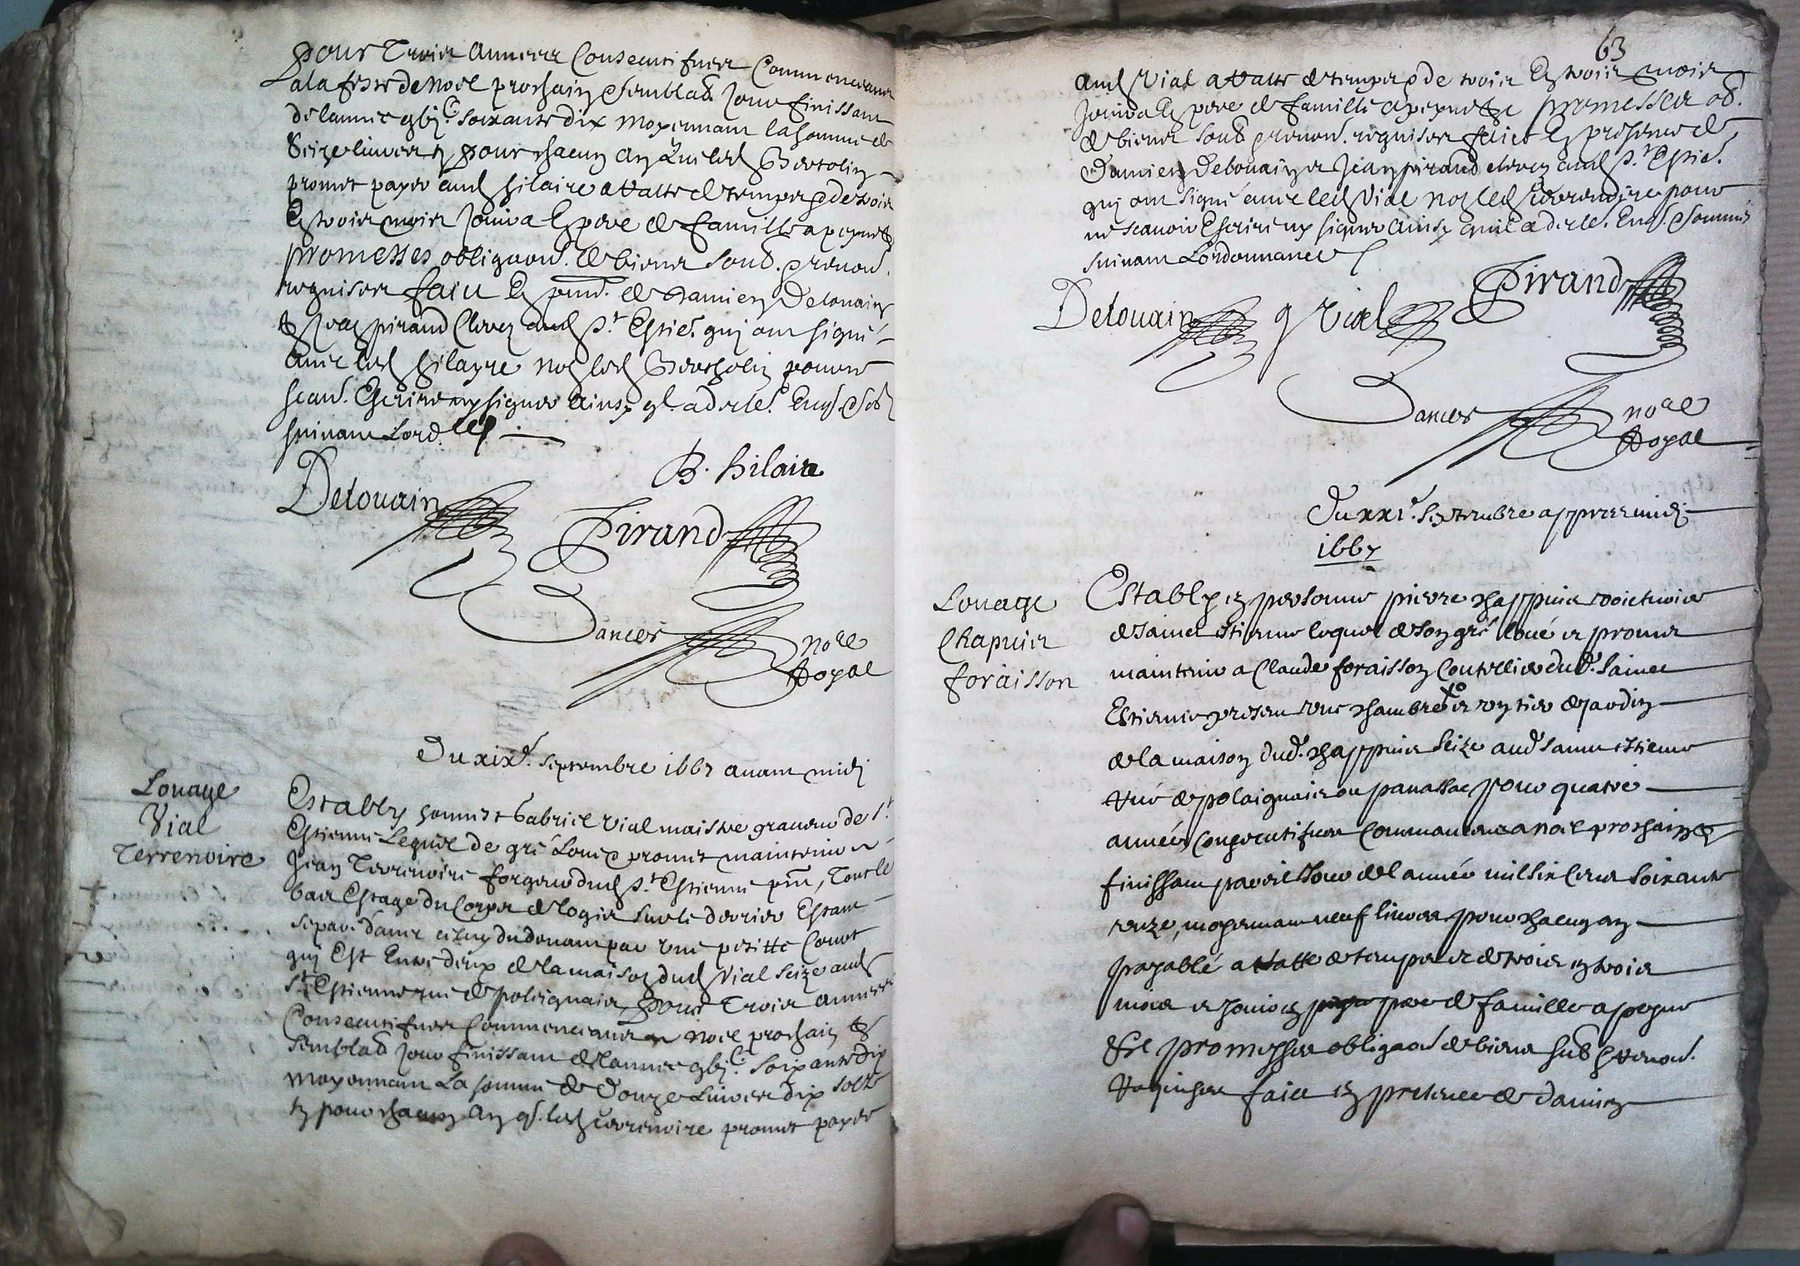 pour Trois Années Consecutifues Commenceant
ala feste de Noel prochain & semblab. Jour finissant
de lannee gbjc. soixante dix moyennant la somme de
Seize Liures pour chacun an Lesd. Bertolin
promet payer aud hilaire
En trois mois Jouira En pere de famille a peyne &
promesses obligaons. de biens soub. & renon.
requises faict En pnce. de Damien Detouain
& Jean pirand Clercz aud St. Estie. qui ont signé
auec led hilayre non led Bertholin pour ne
scau. Escrire ny signer Ainsy q. a decle. Enq.
suiuant Lord.
B. hilaire
Detouain
Pirand
Dances nore
Royal
Du xixe. septembre 1667 auant midi
Louage
Vial
Terrenoire
Estably honnest Gabriel Vial maistre graueur de St.
Estienne Lequel de gré Loue & promet maintenir a
Jean Terrenoire forgeur dud St. Estienne pnt, Tout le
bas Estage du Corps de logis sur le derrier Estant
separé dauec celuy du deuant par vne petitte Court
qui Est Entre deux de la maison dud Vial seize aud
St. Estienne rue de polignais pour Trois années
Consecutifues Commenceant a noel prochain &
semblab Jour finissant de lannee gbjc. soixante dix
moyennant La somme de Douze Liures dix solz
pour chacun An q. led terrenoire promet payer
63
aud Vial de trois En trois mois
Jouira En pere de famille a peyne & promesses ob.
de biens soub. & renon. requises faict En presence de
Damien Detouain & Jean pirand clercz aud St. Estie.
qui ont signé auec led Vial non led terrenoire pour
ne scauoir Escrire ny signer Ainsy quil a decle. Enq. & sommé
suiuant Lordonnance
Detouain
g Vial
Pirand
Dances nore
Royal
Du xxie. septembre appres midi
1667
Louage
Chapuis
foraisson
Estably en personne pierre chappuis
de sainct Etienne lequel de son gré loué et promet
maintenir a Claude foraisson Coutellier dud. sainct
Estienne present vne chambre et vn tier de jardin
de la maison dud. chappuis seize aud sainct etienne
rué de polaignais ou panassac pour quatre
années consecutifues Commanceant a noel prochain &
finissant pareil Jour de l année mil six Cent soixante
unze, moyennant neuf liures pour chacun an
payablé de trois en trois
mois et Jouira en pere de famille a peyne
&c promesses obligaons de biens soub & renon.
Requises faict en presence de Damien